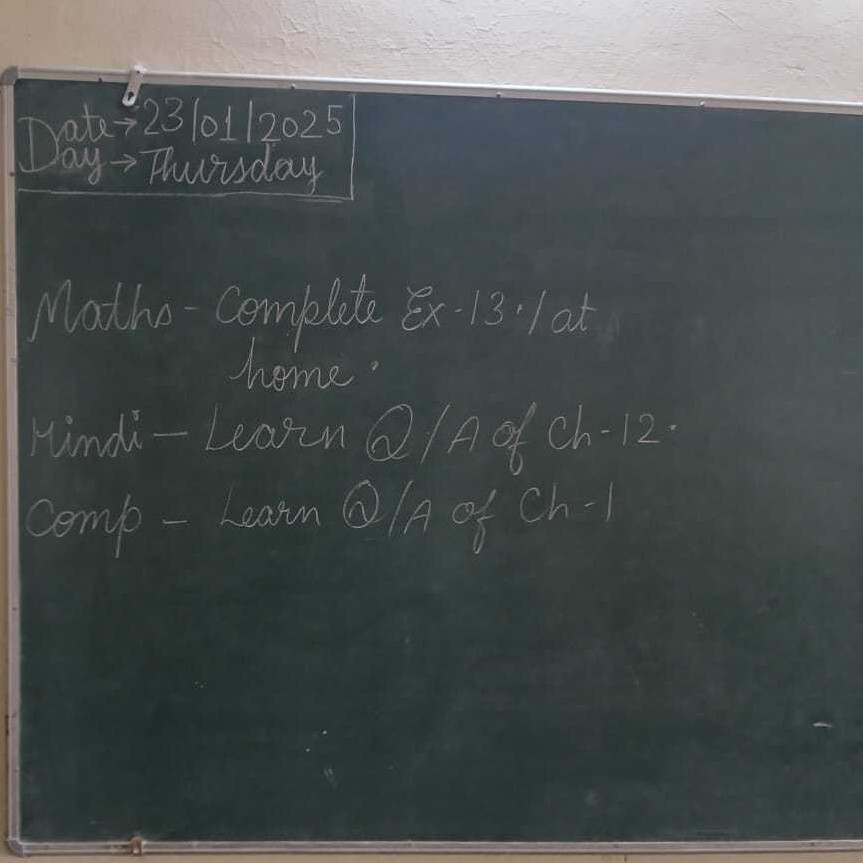 Date → 23/01/2025
Day → Thursday
Maths - Complete Ex-13.1 at
home.
Hindi - Learn Q/A of Ch-12.
Comp - Learn Q/A of Ch-1